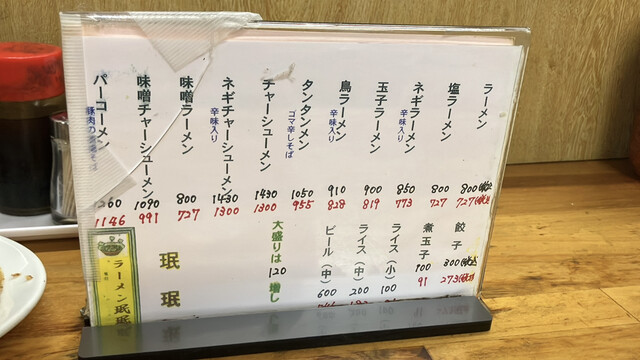 ラーメン 800(税込) 727(税抜)
塩ラーメン 800 727
ネギラーメン 辛味入り 850 773
玉子ラーメン 900 819
鳥ラーメン 辛味入り 910 828
タンタンメン ゴマ辛しそば 1050 955
チャーシューメン 1430 1300
ネギチャーシューメン 辛味入り 1430 1300
味噌ラーメン 800 727
味噌チャーシューメン 1090 991
パーコーメン 1260 1146
餃子 300(税込) 273(税抜)
煮玉子 100 91
ライス(小) 100
ライス(中) 200
ビール(中) 600
大盛りは 120 増し
珉 珉
ラーメン 珉珉